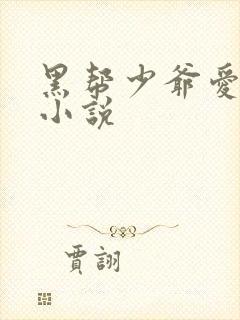 黑帮少爷愛
小説
賈詡